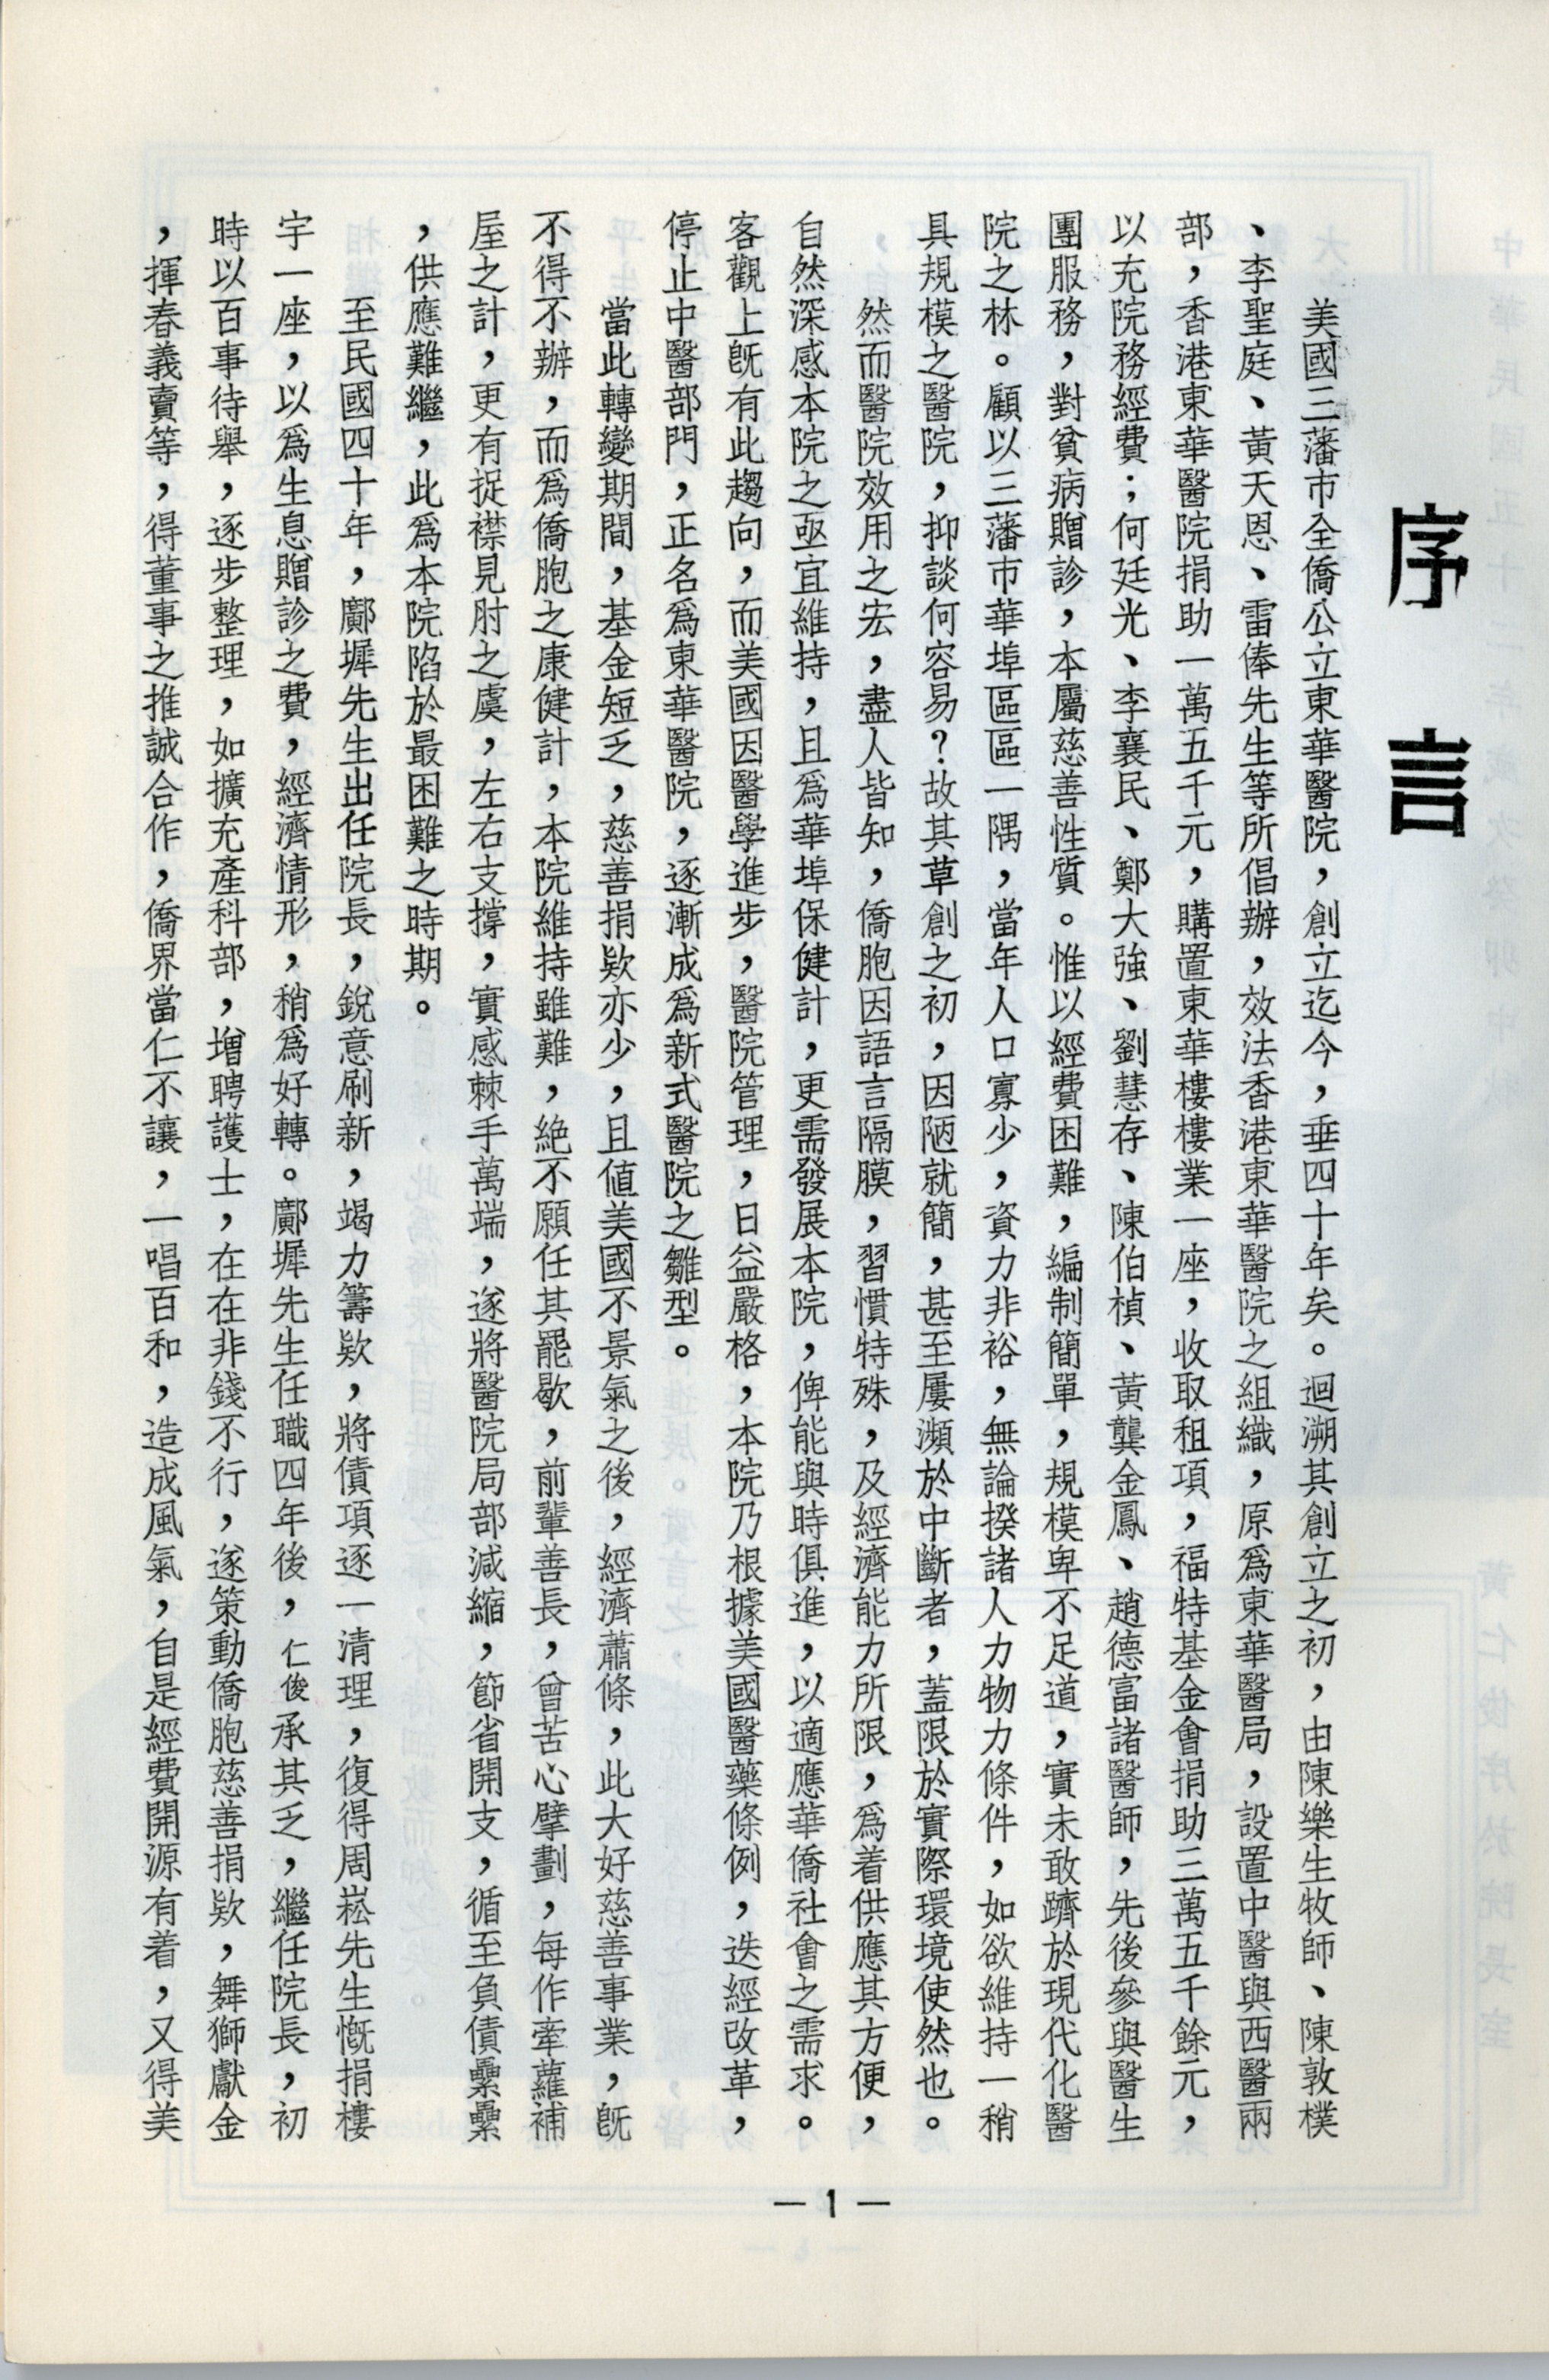 序言
美國三藩市全僑公立東華醫院，創立迄今，垂四十年矣。迴溯其創立之初，由陳樂生牧師、陳敦樸
、李聖庭、黃天恩、雷俸先生等所倡辦，效法香港東華醫院之組織，原爲東華醫局，設置中醫與西醫兩
部，香港東華醫院捐助一萬五千元，購置東華樓樓業一座，收取租項，福特基金會捐助三萬五千餘元，
以充院務經費；何廷光、李襄民、鄭大強、劉慧存、陳伯楨、黃龔金鳳、趙德富諸醫師，先後參與醫生
團服務，對貧病贈診，本屬慈善性質。惟以經費困難，編制簡單，規模卑不足道，實未敢躋於現代化醫
院之林。顧以三藩市華埠區區一隅，當年人口寡少，資力非裕，無論揆諸人力物力條件，如欲維持一稍
具規模之醫院，抑談何容易？故其草創之初，因陋就簡，甚至屢瀕於中斷者，蓋限於實際環境使然也。
然而醫院效用之宏，盡人皆知，僑胞因語言隔膜，習慣特殊，及經濟能力所限，爲着供應其方便，
自然深感本院之亟宜維持，且爲華埠保健計，更需發展本院，俾能與時俱進，以適應華僑社會之需求。
客觀上旣有此趨向，而美國因醫學進步，醫院管理，日益嚴格，本院乃根據美國醫藥條例，迭經改革，
停止中醫部門，正名爲東華醫院，逐漸成爲新式醫院之雛型。
當此轉變期間，基金短乏，慈善捐欵亦少，且値美國不景氣之後，經濟蕭條，此大好慈善事業，旣
不得不辦，而爲僑胞之康健計，本院維持雖難，絶不願任其罷歇，前輩善長，曾苦心擘劃，每作牽蘿補
屋之計，更有捉襟見肘之虞，左右支撐，實感棘手萬端，遂將醫院局部減縮，節省開支，循至負債纍纍
，供應難繼，此爲本院陷於最困難之時期。
至民國四十年，鄺墀先生出任院長，銳意刷新，竭力籌欵，將債項逐一清理，復得周崧先生慨捐樓
宇一座，以爲生息贈診之費，經濟情形，稍爲好轉。鄺墀先生任職四年後，仁俊承其乏，繼任院長，初
時以百事待舉，逐步整理，如擴充產科部，增聘護士，在在非錢不行，遂策動僑胞慈善捐欵，舞獅獻金
，揮春義賣等，得董事之推誠合作，僑界當仁不讓，一唱百和，造成風氣，自是經費開源有着，又得美
—1—